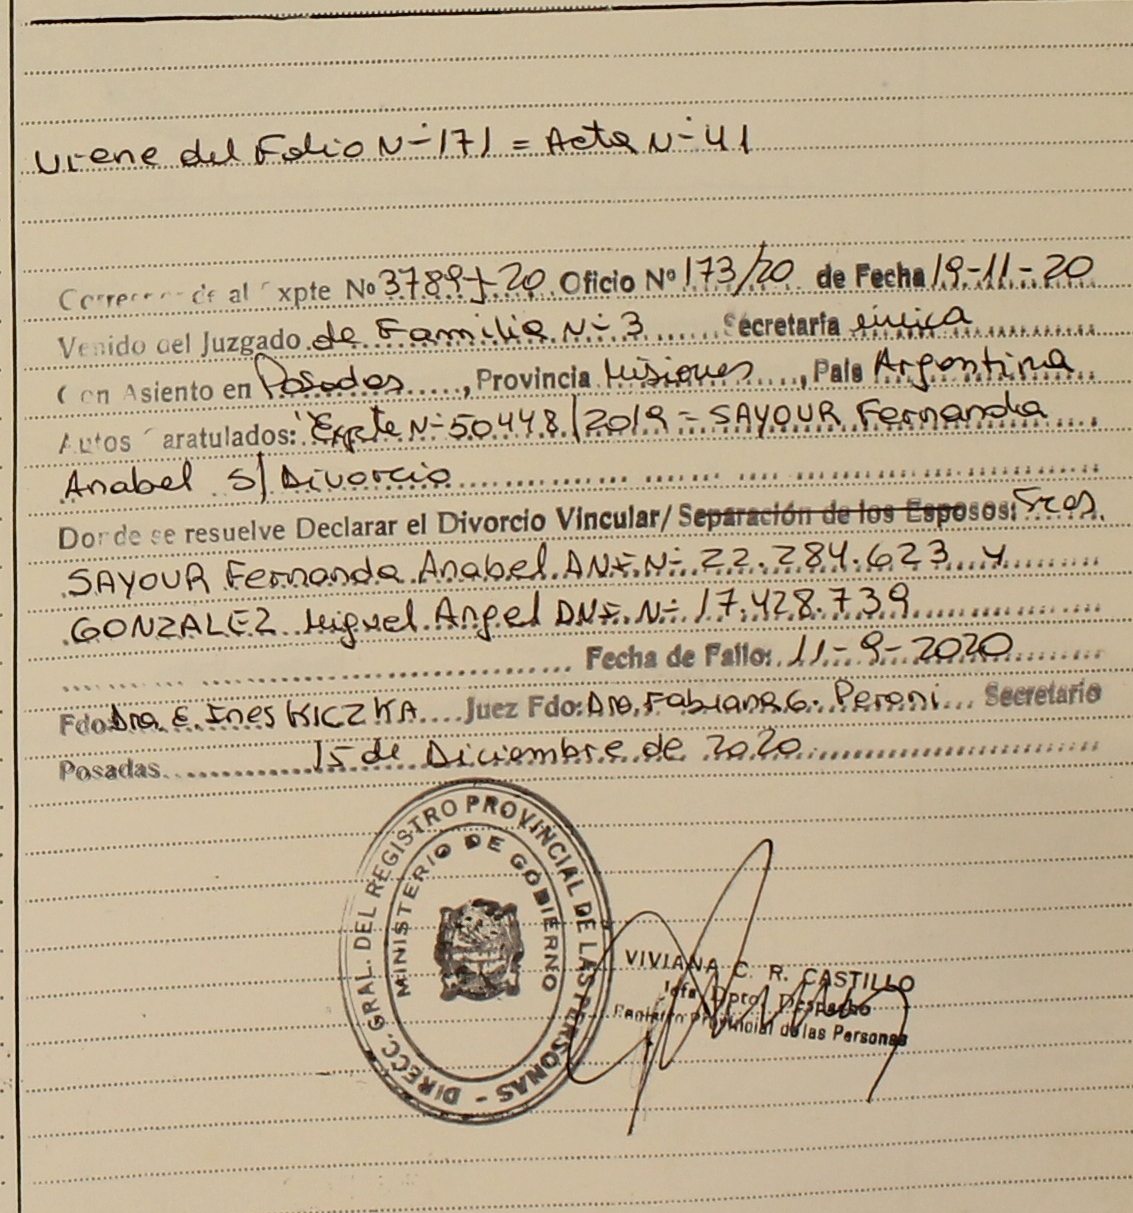 Viene del Folio N° 171 = Acta N° 41
Corresponde al Expte Nº 3789-J-20 Oficio Nº 173/20 de Fecha 19-11-20
Venido del Juzgado de Familia N° 3 Secretaria única
Con Asiento en Posadas, Provincia Misiones, Pais Argentina
Autos Caratulados: "Expte N° 50448/2019 = SAYOUR Fernanda
Anabel S/ Divorcio
Donde se resuelve Declarar el Divorcio Vincular/ Separación de los Esposos:
SAYOUR Fernanda Anabel DNI. N° 22.284.623 y
GONZALEZ Miguel Angel DNI. N° 17.428.739
Fecha de Fallo: 11-9-2020
Fdo: Dra E. Ines KICZKA Juez Fdo: Dra. Fabiana G. Peroni Secretario
Posadas 15 de Diciembre de 2020
DIRECC. GRAL. DEL REGISTRO PROVINCIAL DE LAS PERSONAS -
MINISTERIO DE GOBIERNO
VIVIANA C. R. CASTILLO
Jefa Dpto. Despacho
Registro Provincial de las Personas